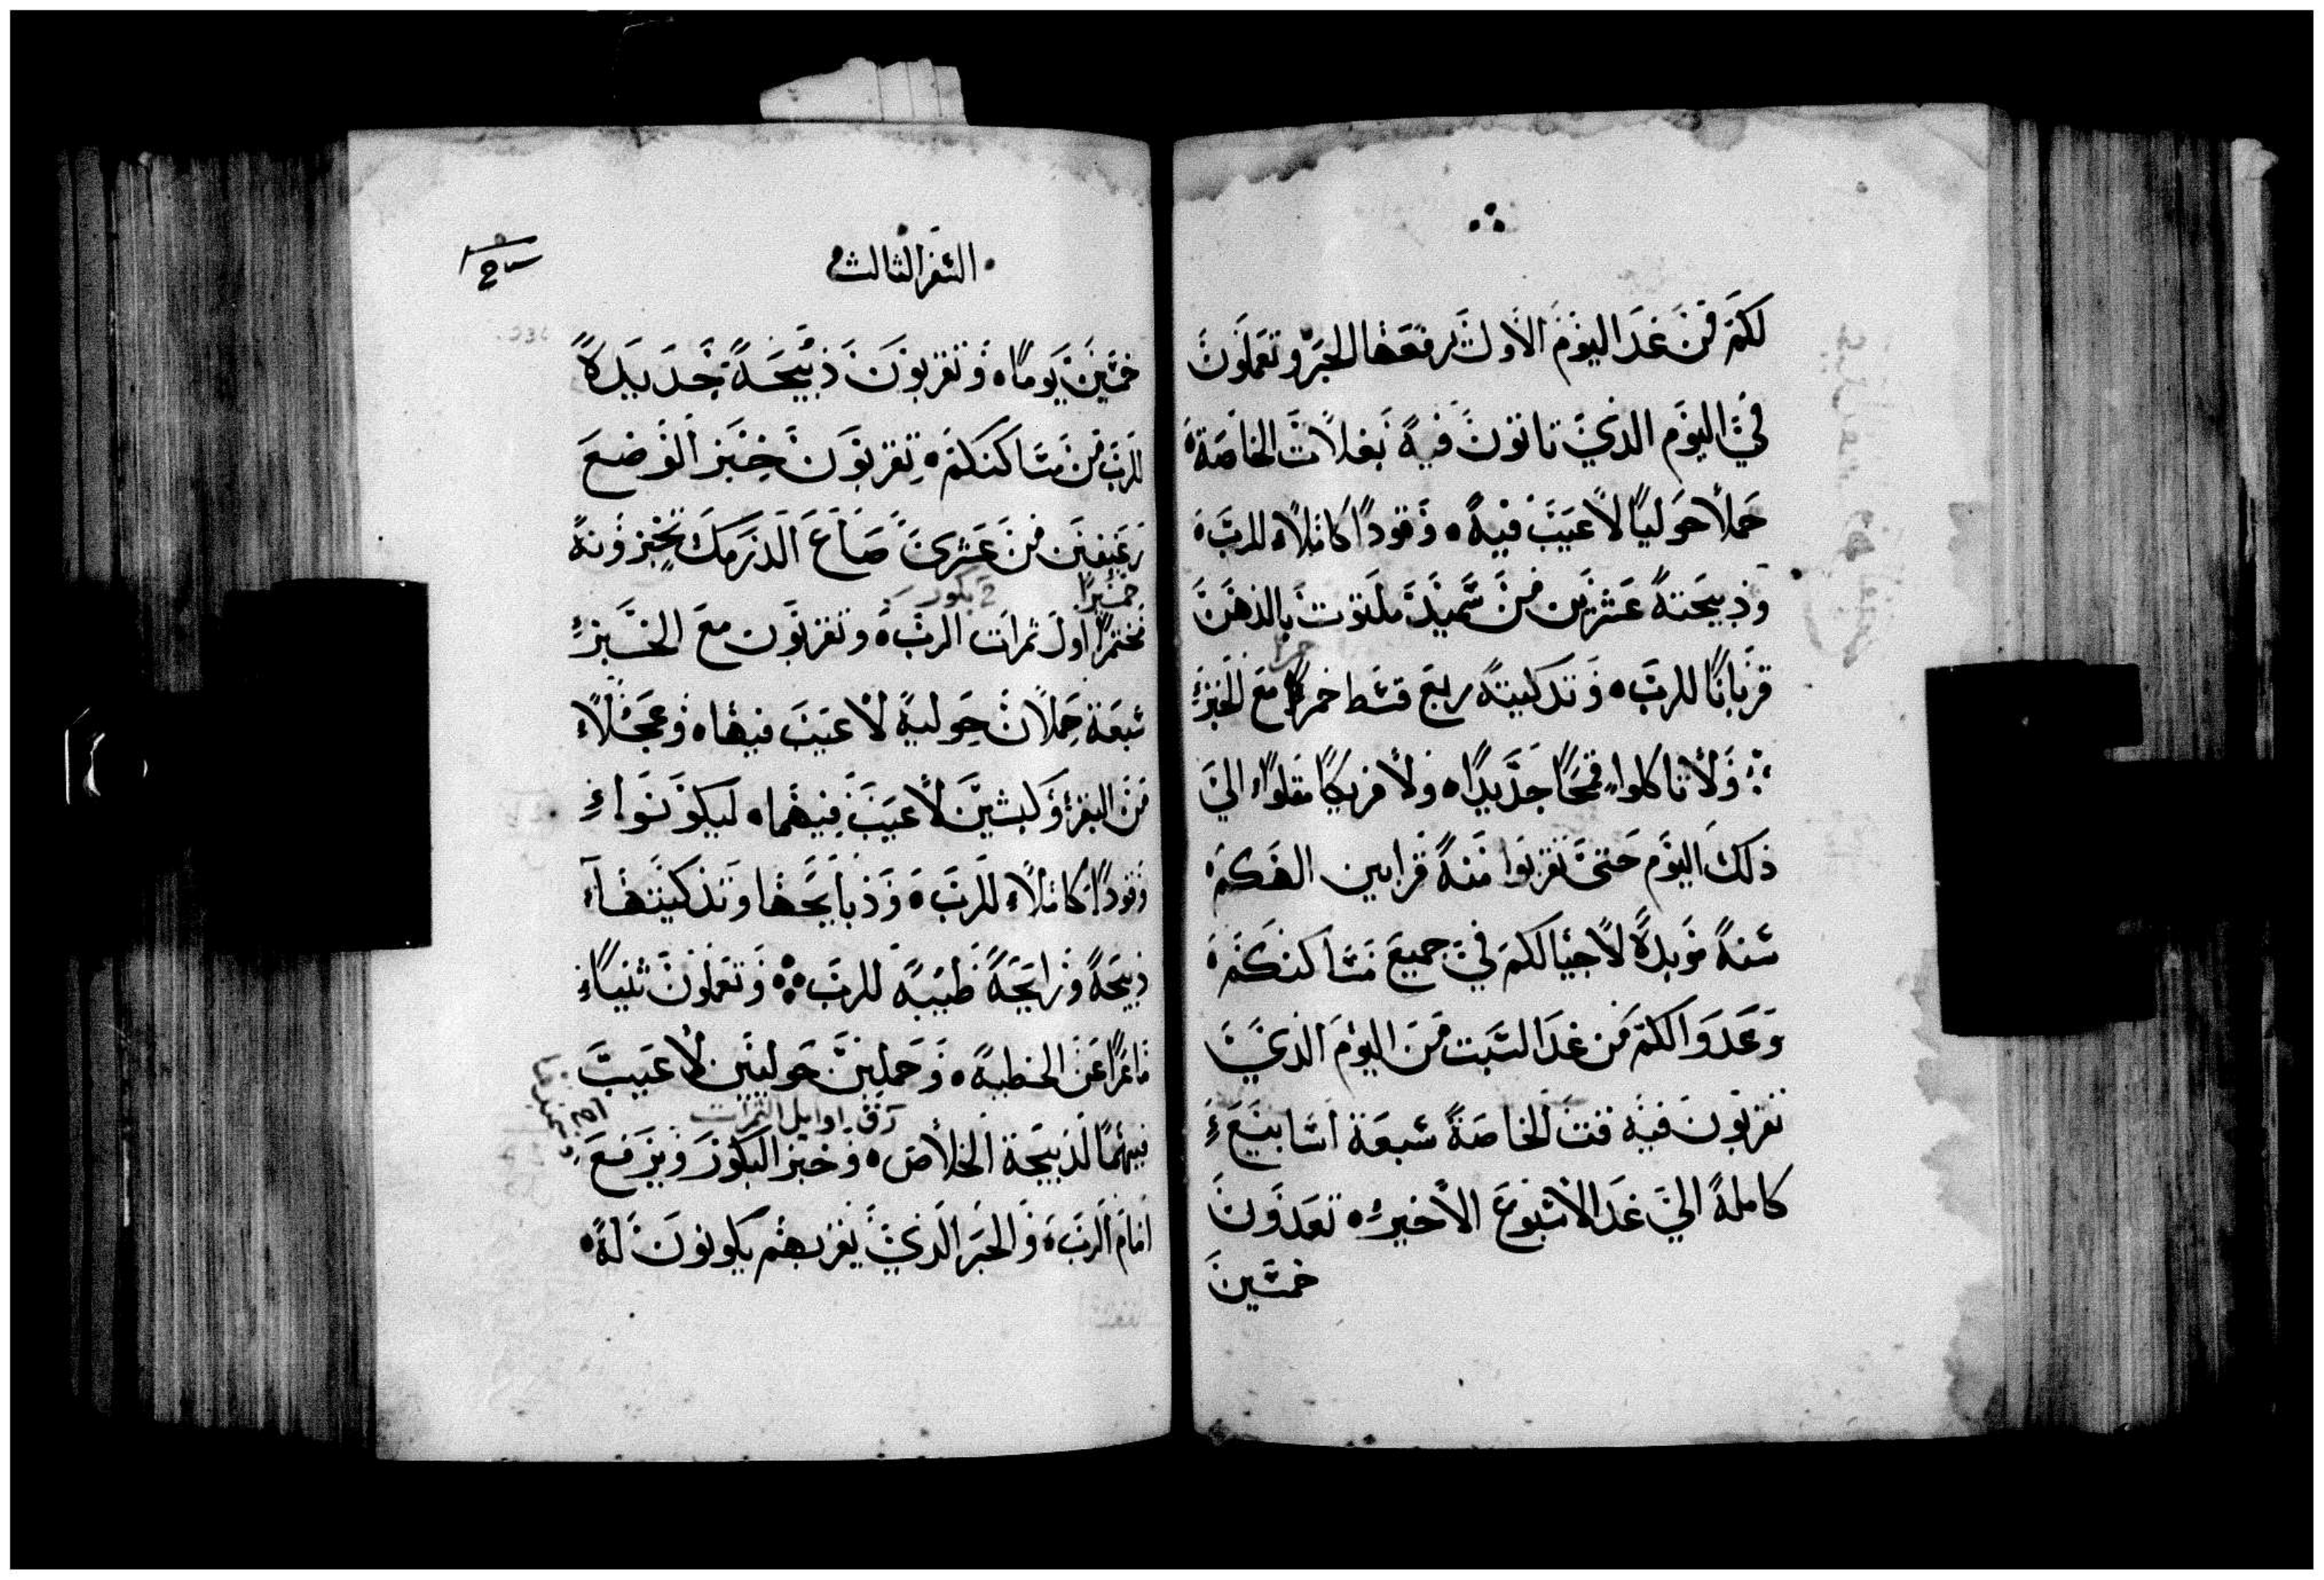 لكم من غد اليوم الاول يرفعها الحبر وتعملون
في اليوم الذي تاتون فيه بغلات الخاصة
حملاً حولياً لا عيب فيه وقوداً كاملاً للرب
وذبيحته عشرين من سميد ملتوت بالدهن
قرباناً للرب وتدكيته ربع قسط خمر مع الخبز
ولا تاكلوا قمحاً جديداً ولا فريكاً مقلواً الي
ذلك اليوم حتي تقربوا منه قرابين الهكم
سنةً موبدةً لاجيالكم في جميع مساكنكم
وعدوا لكم من غد السبت من اليوم الذي
تقربون فيه فت الخاصة سبعة اسابيع
كاملة الي غد الاسبوع الاخير تعدون
خمسين
السفر الثالث
خمسين يوماً وتقربون ذبيحة جديدةً
للرب من مساكنكم تقربون خبز الوضع
رغيفين من عشري صاع الدرمك تخبزونه
خميراً بكور
مختمراً اول ثمرات الرب وتقربون مع الخبز
سبعة حملان حولية لا عيب فيها وعجلاً
من البقر وكبشين لا عيب فيهما ليكونوا
وقوداً كاملاً للرب وذبايحها وتدكيتها
ذبيحةً ورايحةً طيبة للرب وتعملون ثنياً
ماعزاً عن الخطية وحملين حوليين لا عيب
اوايل الثمرات
فيهما لذبيحة الخلاص وخبز البكور ويرفع
امام الرب والحبر الذي يقربهم يكونون له